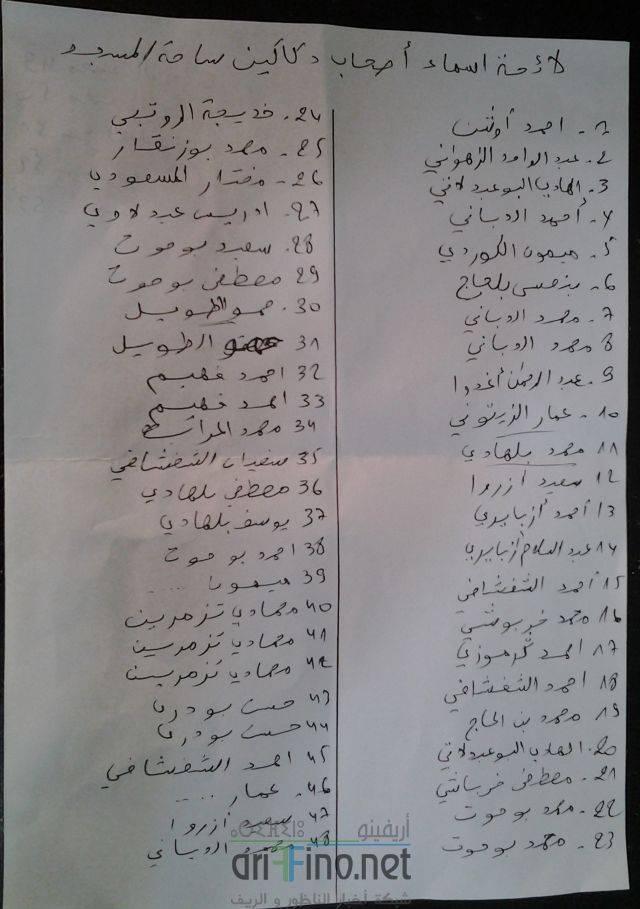 لائحة اسماء أصحاب دكاكين ساحة المسجد
1- احمد أوشن
2- عبد الواحد الزهواني
3- الهادي البوعبدلاتي
4- أحمد الوباني
5- ميمون الكوردي
6- بنعيسى بلحاج
7- محمد الوباني
8 محمد الوباني
9- عبد الرحمان أغدوا
10- عمار الزيتوني
11 محمد بلهادي
12 سعيد أزروا
13 أحمد أزبايري
14 عبد السلام أزبايري
15 أحمد الشفشافي
16 محمد خربوشي
17 احمد گرموزي
18 احمد الشفشافي
19 محمد بن الحاج
20 الهادي البوعبدلاتي
21- مصطفى خرباشي
22- محمد بوحوت
23- محمد بوحوت
24- خديجة الروتبي
25- محمد بوزنقار
26- مختار المسعودي
27- ادريس عبدلاوي
28- سعيد بوحوت
29 مصطفى بوحوت
30- حمو الطويل
31 الطويل
32 احمد فهيم
33 احمد فهيم
34 محمد المرابط
35 سفيان الشفشافي
36 مصطفى بلهادي
37 يوسف بلهادي
38 احمد بوحوت
39 ميمون .....
40 محمادي تزمرين
41 محمادي تزمرين
42 محمادي تزمرين
43 حسن بودرة
44 حسن بودرة
45 احمد الشفشافي
46- عمار .....
47 سعيد أزروا
48 محمد الوباني
أريفينو
ⴰⵔⵉⴼⵉⵏⵓ
ariffino.net
شبكة أخبار الناظور و الريف